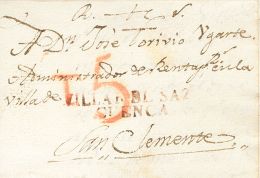 A Dn. José Torivio Ugarte
Administrador de Rentas Rs. en la
Villa de
5
VILLAR DEL SAZ
CUENCA
San Clemente